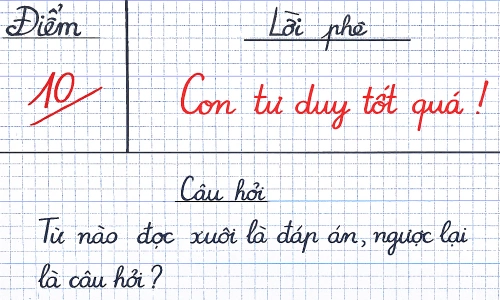 Điểm
Lời phê
10
Con tư duy tốt quá!
Câu hỏi
Từ nào đọc xuôi là đáp án, ngược lại
là câu hỏi?